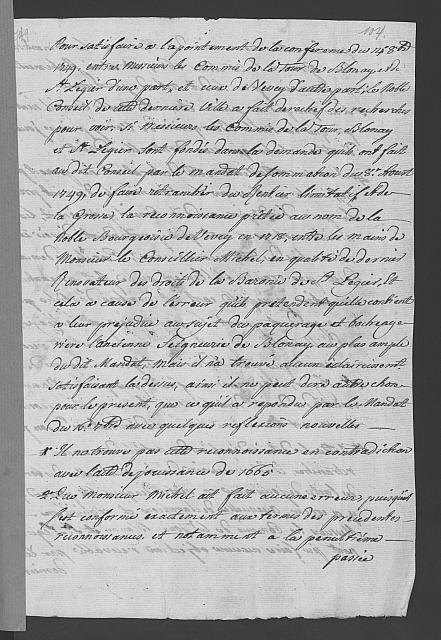 107.
Pour satisfaire a l'apointement de la conference du 14 8bre
1749. entre Messieurs les Commis de la Tour de Blonay et de
St Legier d'une part, et ceux de Vevey d'autre part, Le Noble
Conseil de cette derniere Ville a fait de rechef des recherches
pour voir si Messieurs les Commis de la Tour, Blonay
et St Legier sont fondés dans la demande qu'ils ont fait
audit Conseil par le mandat de sommation du Aoust
1749, de faire retrancher du Rentier limitatif et de
la Grosse, la reconnoissance prêtée au nom de la
Noble Bourgeoisie de Vevey en entre les mains de
Monsieur le Conseiller Michel, en qualité de dernier
Renovateur des droits de la Baronie de St Legier, Et
cela a cause de l'erreur qu'ils pretendent qu'elle contient
a leur préjudice au sujet du paquerage et bocheage
riere l'ancienne Seigneurie de Blonay, au plus ample
dudit Mandat, Mais il n'a trouvé aucun éclaircissement
satisfaisant la dessus, ainsi il ne peut dire autre chose
pour le present, que ce qu'il a repondu par le Mandat
du avec quelques reflexions nouvelles
1° Il ne trouve pas cette reconnoissance en contradiction
avec l'acte de jouissance de 1665
2° Que Monsieur Michel ait fait aucune erreur, puisqu'il
s'est conformé exactement aux termes des precedentes
reconnoissances, et notamment a la penultième
passée